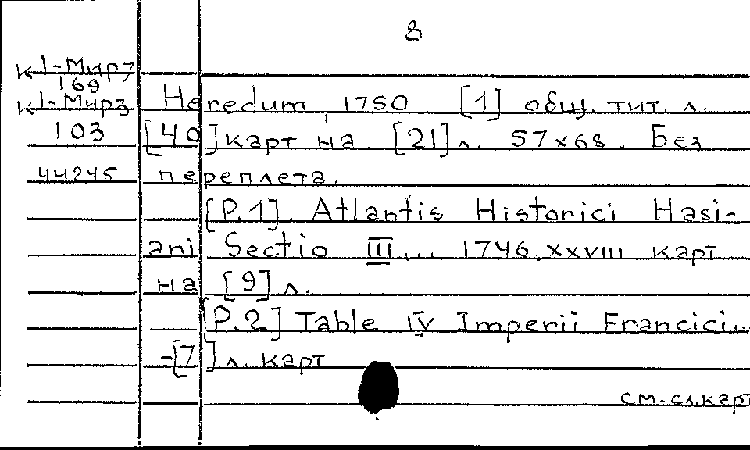 8
К 1-Мир7
169
К 1-Мир3 Heredum, 1750 [1] общ. тит. л.
103 [40] карт на [21] л. 57×68. Без
44245 переплета.
[P.1] Atlantis Historici Hasi-
ani Sectio III... 1746. XXVIII карт
на [9] л.
[P.2] Table IV Imperii Francici...
-[7] л. карт
см. сл. карт